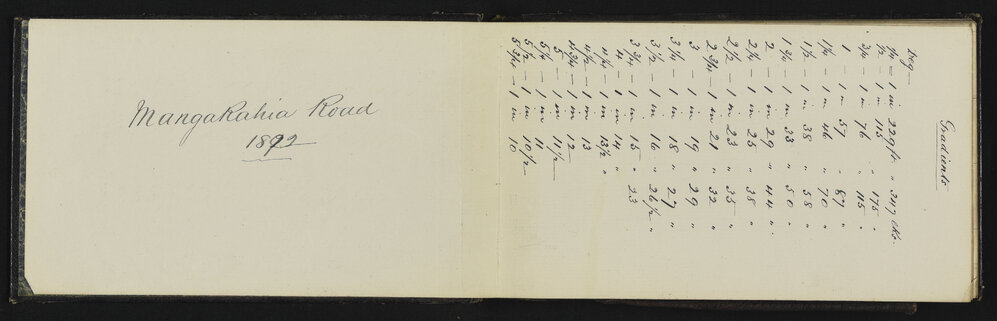 Mangakahia Road
1892
Gradients
Deg —
1/4 — 1 in 229 ft. " 347 lks.
1/2 — 1 in 115 " 175 "
3/4 — 1 in 76 " 115 "
1 — 1 in 57 " 87 "
1 1/4 — 1 in 46 " 70 "
1 1/2 — 1 in 38 " 58 "
1 3/4 — 1 in 33 " 50 "
2 — 1 in 29 " 44 "
2 1/4 — 1 in 25 " 38 "
2 1/2 — 1 in 23 " 35 "
2 3/4 — 1 in 21 " 32 "
3 — 1 in 19 " 29 "
3 1/4 — 1 in 18 " 27 "
3 1/2 — 1 in 16 " 26 1/2 "
3 3/4 — 1 in 15 " 23
4 — 1 in 14 "
4 1/4 — 1 in 13 1/2 "
4 1/2 — 1 in 13
4 3/4 — 1 in 12
5 — 1 in 11 1/2
5 1/4 — 1 in 11
5 1/2 — 1 in 10 1/2
5 3/4 — 1 in 10